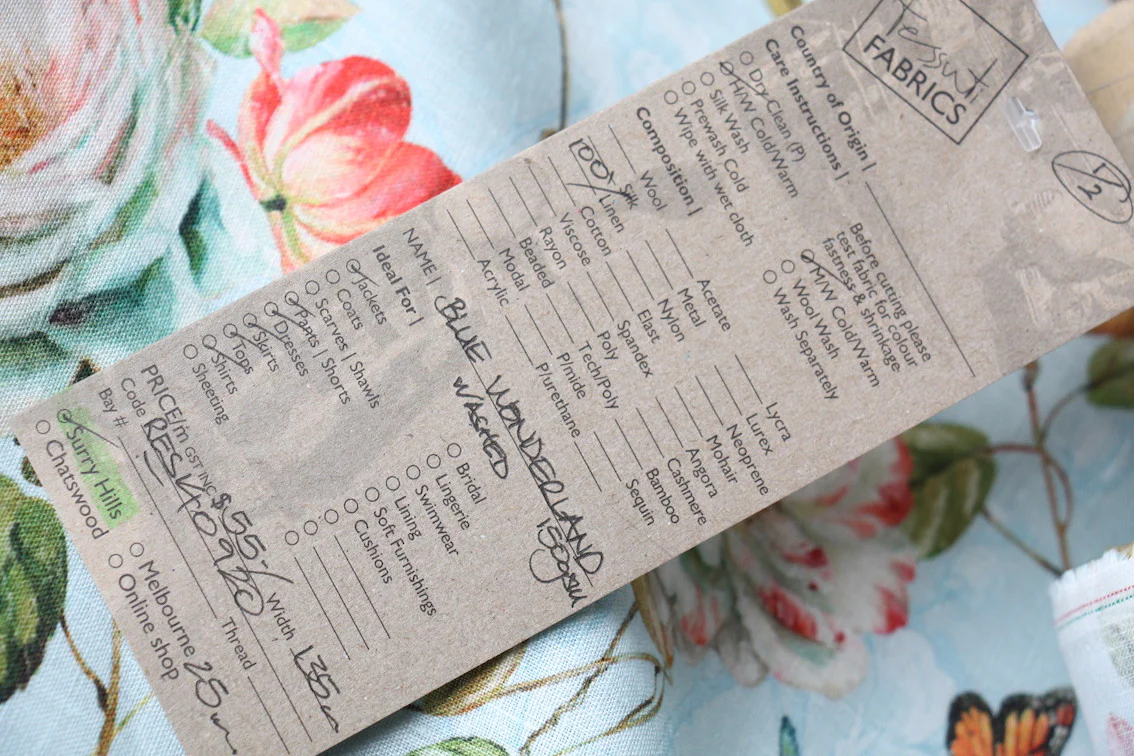 1/2
Tessuti
FABRICS
Country of Origin |
Care Instructions |
Dry Clean (P)
H/W Cold/Warm
Silk Wash
Prewash Cold
Wipe with wet cloth
Before cutting please
test fabric for colour
fastness & shrinkage.
M/W Cold/Warm
Wool Wash
Wash Separately
Composition |
Wool
100% Silk
Linen
Cotton
Viscose
Rayon
Beaded
Modal
Acrylic
Acetate
Metal
Nylon
Elast
Spandex
Poly
Tech/Poly
P/mide
P/urethane
Lycra
Lurex
Neoprene
Mohair
Angora
Cashmere
Bamboo
Sequin
NAME | BLUE WONDERLAND
WASHED 150gsm
Ideal For |
Jackets
Coats
Scarves | Shawls
Pants | Shorts
Dresses
Skirts
Tops
Shirts
Sheeting
Bridal
Lingerie
Swimwear
Lining
Soft Furnishings
Cushions
PRICE/m GST INC $55.- Width 135cm
Code
Bay # Thread
Surry Hills
Chatswood
Melbourne
Online shop
25m